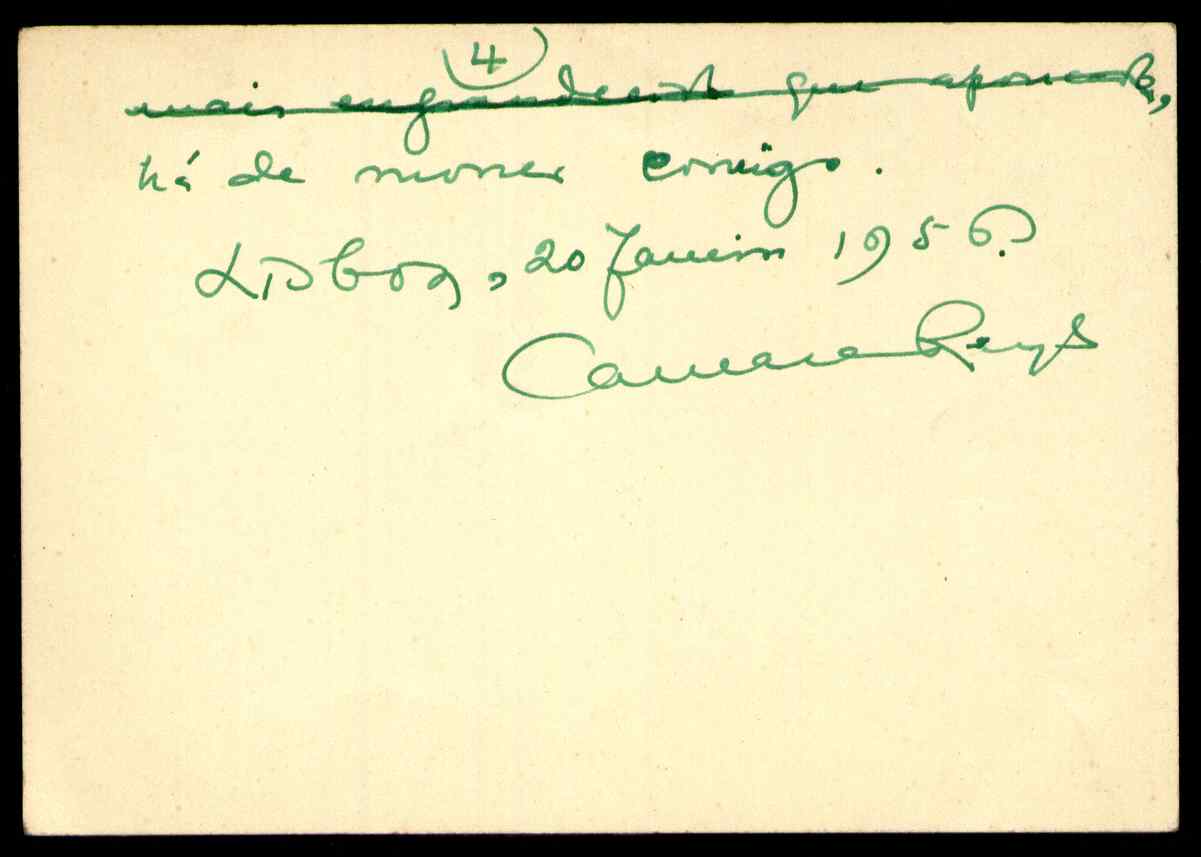 4
mais engrandecida que aponente,
há de morrer comigo.
Lisboa, 20 Janeiro 1956.
Camara Reys